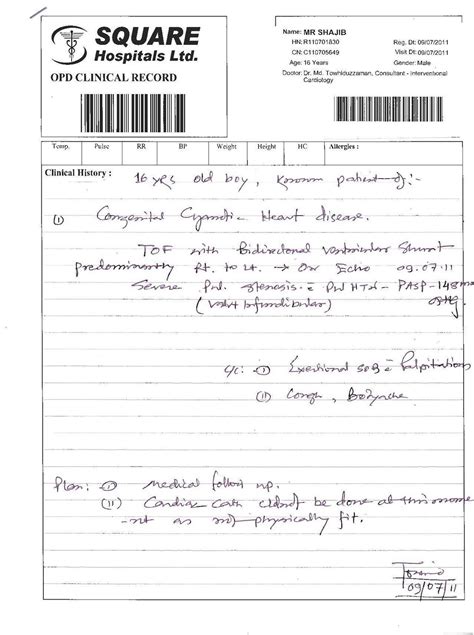 SQUARE
Hospitals Ltd.
OPD CLINICAL RECORD
Name: MR SHAJIB
HN: R110701830 Reg. Dt: 09/07/2011
CN: C110705649 Visit Dt: 09/07/2011
Age: 16 Years Gender: Male
Doctor: Dr. Md. Towhiduzzaman, Consultant - Interventional
Cardiology
Temp. Pulse RR BP Weight Height HC Allergies :
Clinical History : 16 yrs old boy, known patient of :-
(i) Congenital Cyanotic Heart disease.
TOF with Bidirectional ventricular Shunt
predominantly Rt. to Lt. → On Echo 09.07.11
Severe Pul. Stenosis c̄ Pul HTN - PASP-148mm
(valvo + Infundibular) of Hg
C/C: (i) Exertional SOB c̄ Palpitations
(ii) Cough, Bodyache
Plan: (i) Medical follow up.
(ii) Cardiac cath didnot be done at this mome
-nt as not physically fit.
09/07/11